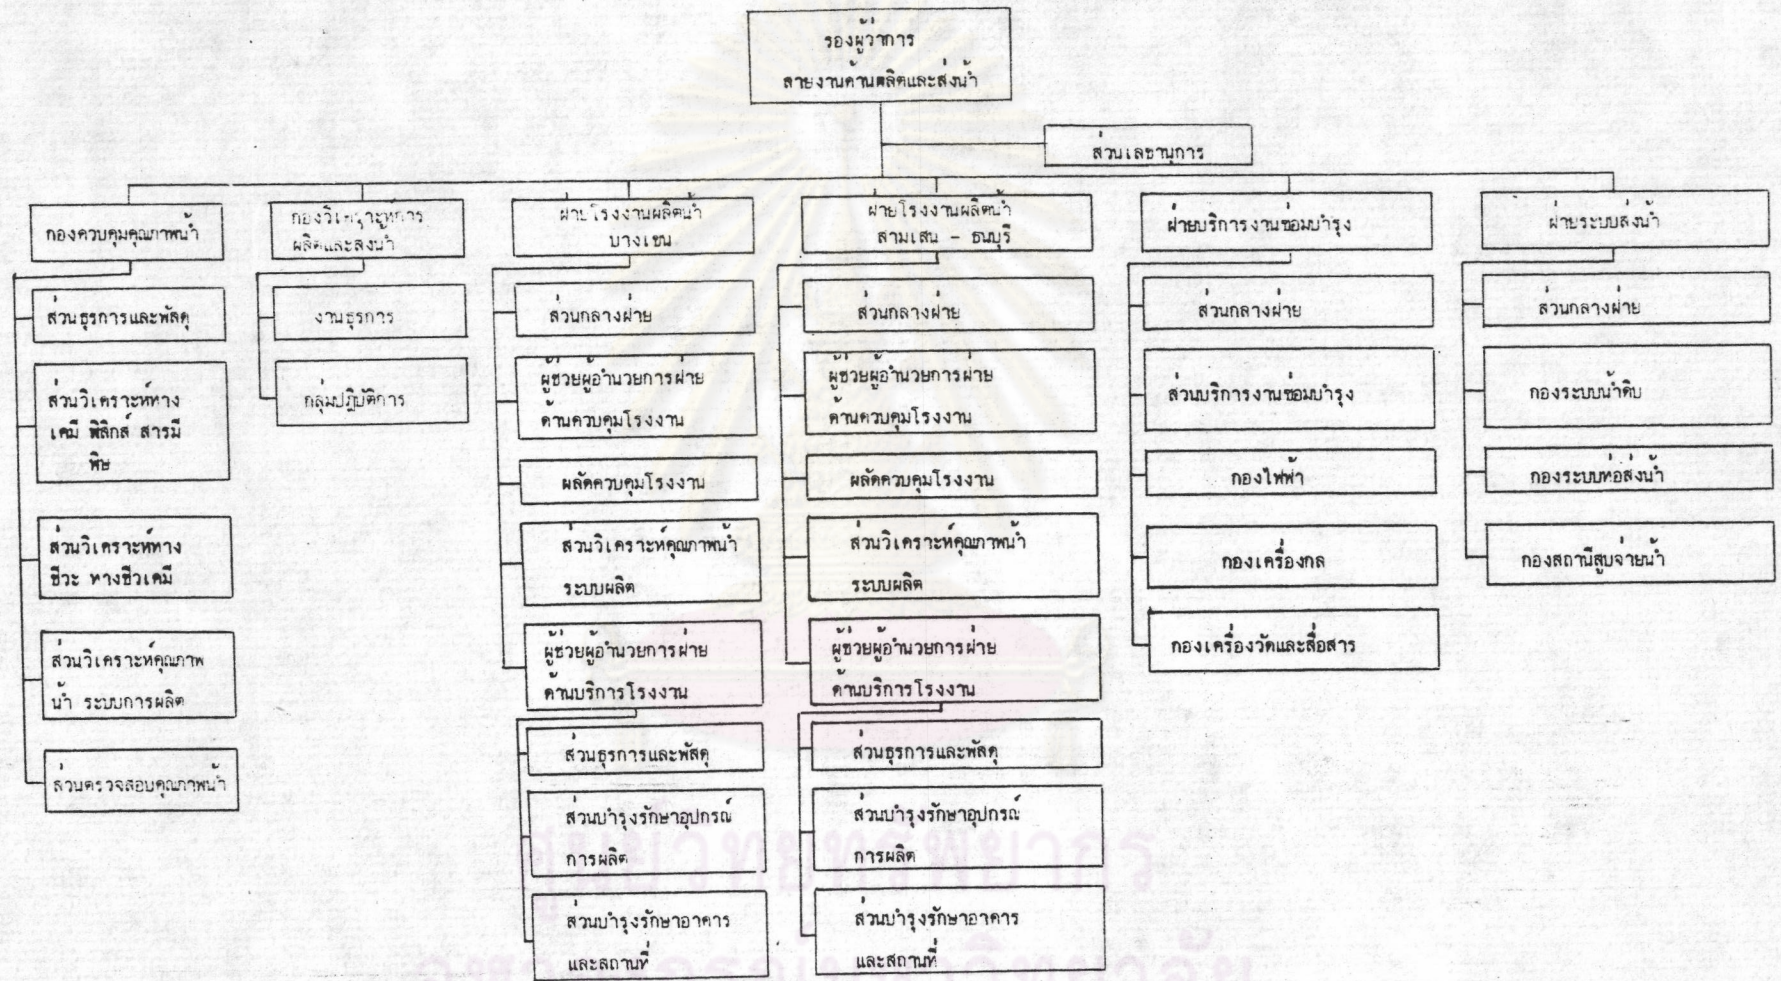 รองผู้ว่าการ
สายงานด้านผลิตและส่งน้ำ
ส่วนเลขานุการ
กองควบคุมคุณภาพน้ำ
ส่วนธุรการและพัสดุ
ส่วนวิเคราะห์ทาง
เคมี ฟิสิกส์ สารมี
พิษ
ส่วนวิเคราะห์ทาง
ชีวะ ทางชีวเคมี
ส่วนวิเคราะห์คุณภาพ
น้ำ ระบบการผลิต
ส่วนตรวจสอบคุณภาพน้ำ
กองวิเคราะห์การ
ผลิตและส่งน้ำ
งานธุรการ
กลุ่มปฏิบัติการ
ฝ่ายโรงงานผลิตน้ำ
บางเขน
ส่วนกลางฝ่าย
ผู้ช่วยผู้อำนวยการฝ่าย
ด้านควบคุมโรงงาน
ผลัดควบคุมโรงงาน
ส่วนวิเคราะห์คุณภาพน้ำ
ระบบผลิต
ผู้ช่วยผู้อำนวยการฝ่าย
ด้านบริการโรงงาน
ส่วนธุรการและพัสดุ
ส่วนบำรุงรักษาอุปกรณ์
การผลิต
ส่วนบำรุงรักษาอาคาร
และสถานที่
ฝ่ายโรงงานผลิตน้ำ
สามเสน - ธนบุรี
ส่วนกลางฝ่าย
ผู้ช่วยผู้อำนวยการฝ่าย
ด้านควบคุมโรงงาน
ผลัดควบคุมโรงงาน
ส่วนวิเคราะห์คุณภาพน้ำ
ระบบผลิต
ผู้ช่วยผู้อำนวยการฝ่าย
ด้านบริการโรงงาน
ส่วนธุรการและพัสดุ
ส่วนบำรุงรักษาอุปกรณ์
การผลิต
ส่วนบำรุงรักษาอาคาร
และสถานที่
ฝ่ายบริการงานซ่อมบำรุง
ส่วนกลางฝ่าย
ส่วนบริการงานซ่อมบำรุง
กองไฟฟ้า
กองเครื่องกล
กองเครื่องวัดและสื่อสาร
ฝ่ายระบบส่งน้ำ
ส่วนกลางฝ่าย
กองระบบน้ำดิบ
กองระบบท่อส่งน้ำ
กองสถานีสูบจ่ายน้ำ
ศูนย์วิทยทรัพยากร
จุฬาลงกรณ์มหาวิทยาลัย